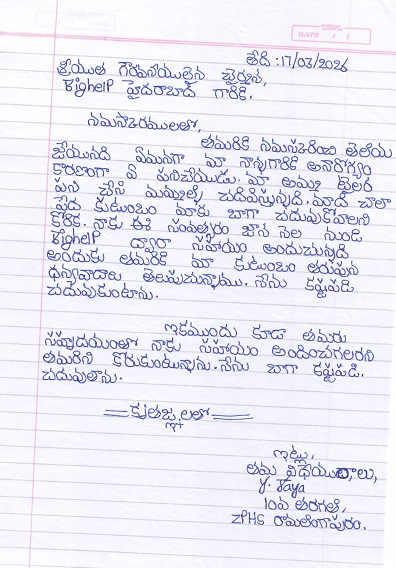 DATE / /
తేది :17/03/2026
శ్రీయుత గౌరవనీయులైన ఛైర్మన్,
Bighelp హైదరాబాద్ గారికి.
నమస్కారములతో,
తమరికి నమస్కరించి తెలియ
జేయునది ఏమనగా మా నాన్నగారికి అనారోగ్యం
కారణంగా ఏ పనిచేయుడు. మా అమ్మ టైలర్
పని చేసి మమ్మల్ని చదివిస్తున్నది. మాది చాలా
పేద కుటుంబం మాకు బాగా చదువుకోవాలని
కోరిక. నాకు ఈ సంవత్సరం జూన్ నెల నుండి
Bighelp ద్వారా సహాయం అందుచున్నది
అందుకు తమరికి మా కుటుంబం తరుపున
ధన్యవాదాలు తెలుపుచున్నాము. నేను కష్టపడి
చదువుకుంటాను.
ఇకముందు కూడా తమరు
సహృదయంతో నాకు సహాయం అందించగలరని
తమరిని కోరుకుంటున్నాను. నేను బాగా కష్టపడి.
చదువుతాను.
కృతజ్ఞలతో
ఇట్లు,
తమ విధేయురాలు,
Y. Jaya
10వ తరగతి,
ZPHS రామలింగాపురం.